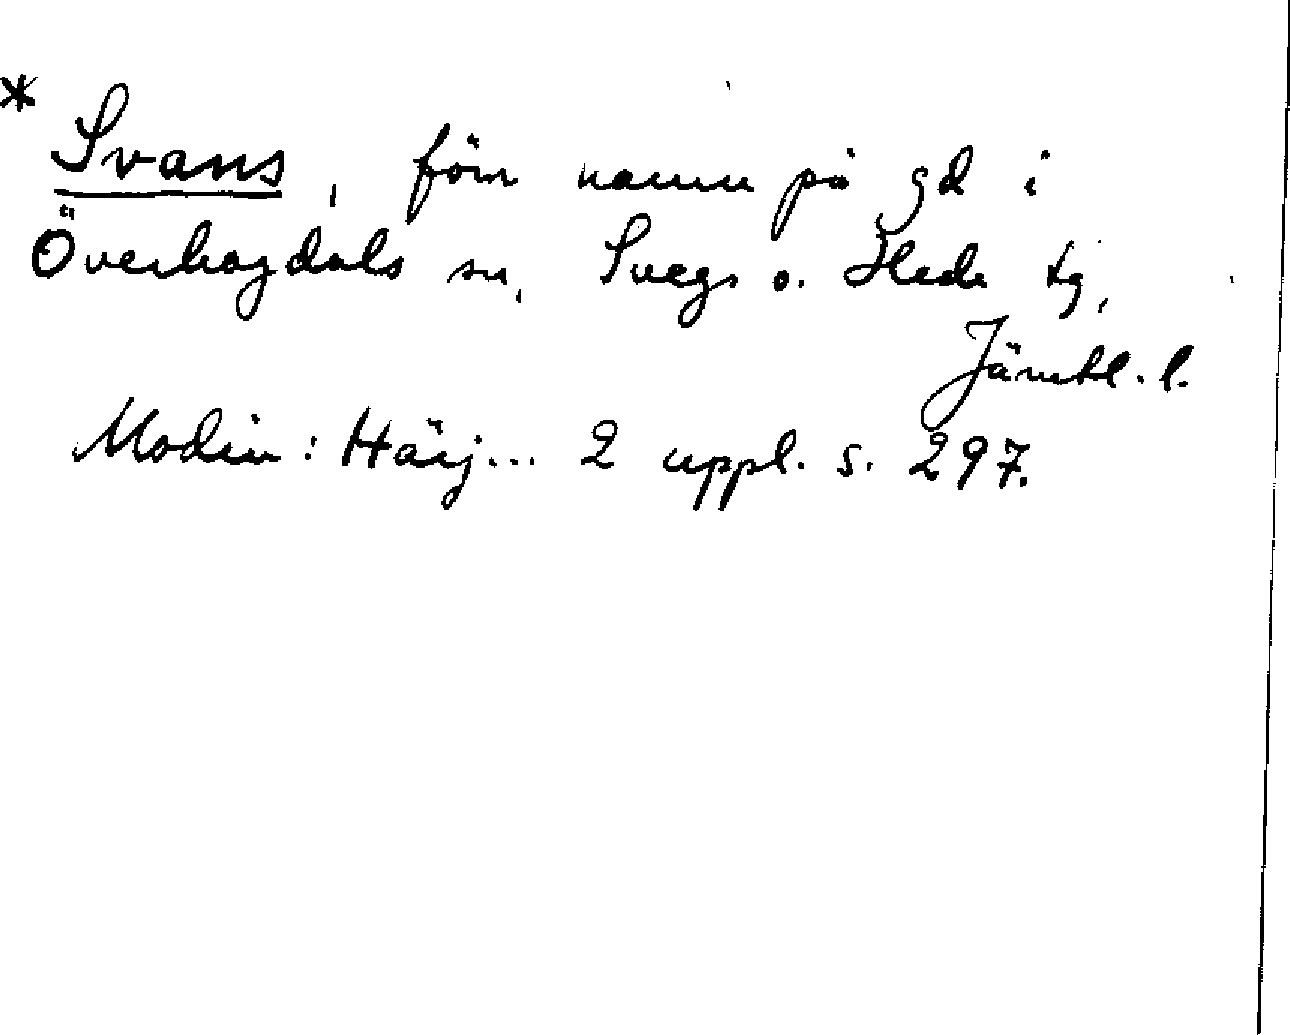 * Svans, förn namn på gd i
Överhogdals sn, Svegs o. Hede tg,
Jämtl. l.
Modin: Härj... 2 uppl. s. 297.